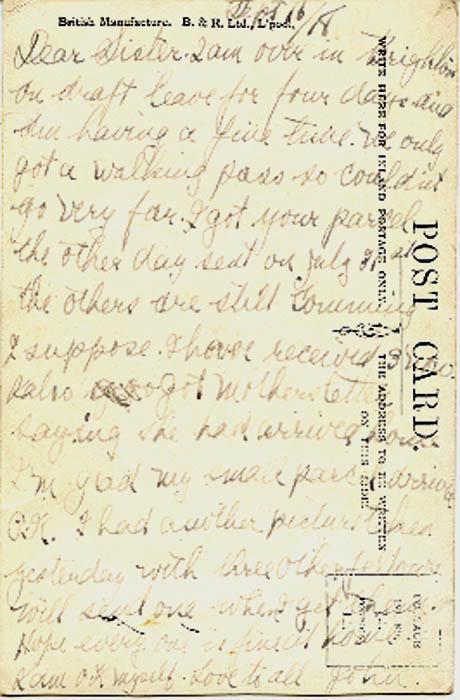 British Manufacture. B. & R. Ltd., L'pool.
Sept 16/18
Dear Sister I am over in Brighton
on draft leave for four days and
am having a fine time. We only
got a walking pass so couldn't
go very far. I got your parcel
the other day sent on July 31st
the others are still comming
I suppose. I have received 3 now
I also got Mothers letter
saying she had arrived home
I'm glad my small parcel arrived
O.K. I had another picture taken
yesterday with three other fellows
will send one when I get them.
Hope every one is fine at home
I am O.K. myself. Love to all John.
POST CARD.
WRITE HERE FOR INLAND POSTAGE ONLY.
THE ADDRESS TO BE WRITTEN
ON THIS SIDE.